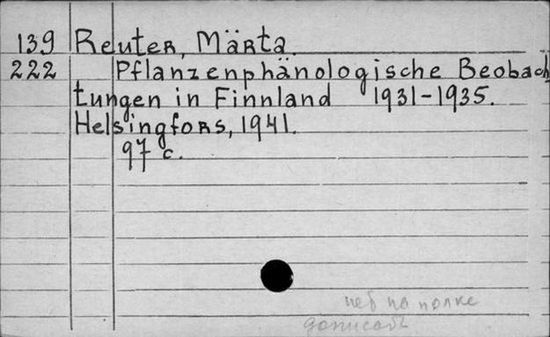 139 Reuter, Märta.
222 Pflanzenphänologische Beobach
tungen in Finnland 1931-1935.
Helsingfors, 1941.
97 c.
нет на полке
дописать